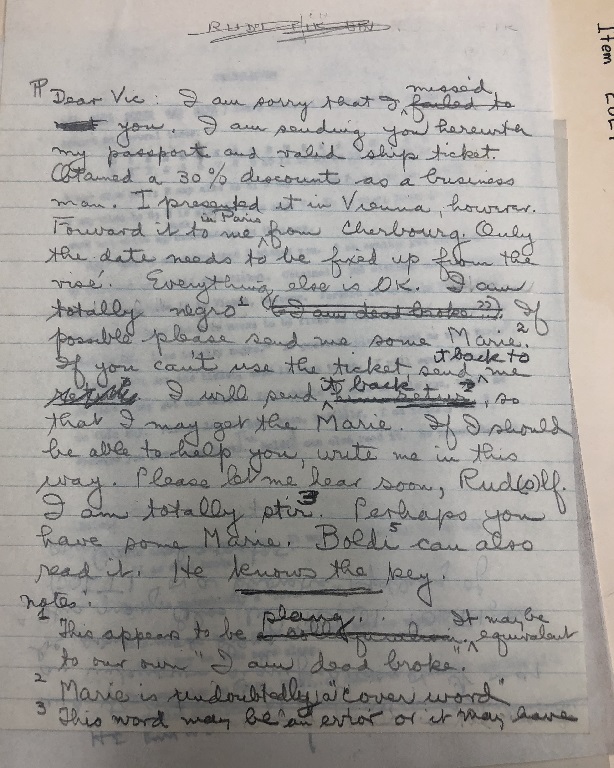 Item 202
Dear Vic: I am sorry that I missed failed to
you. I am sending you herewith
my passport and valid ship ticket.
Obtained a 30% discount as a business
man. I presented it in Vienna, however.
Forward it to me in Paris from Cherbourg. Only
the date needs to be fixed up from the
visé. Everything else is OK. I am
totally negro1 (I am dead broke??) If
possible please send me some Marie.2
If you can't use the ticket send it back to me
I will send it back return?, so
that I may get the Marie. If I should
be able to help you, write me in this
way. Please let me hear soon, Rud(o)lf.
I am totally stir3. Perhaps you
have some Marie. Boldi5 can also
read it. He knows the key.
notes:
1 This appears to be slang. It may be equivalent
to our own "I am dead broke".
2 Marie is undoubtedly a "cover word"
3 This word may be an error or it may have